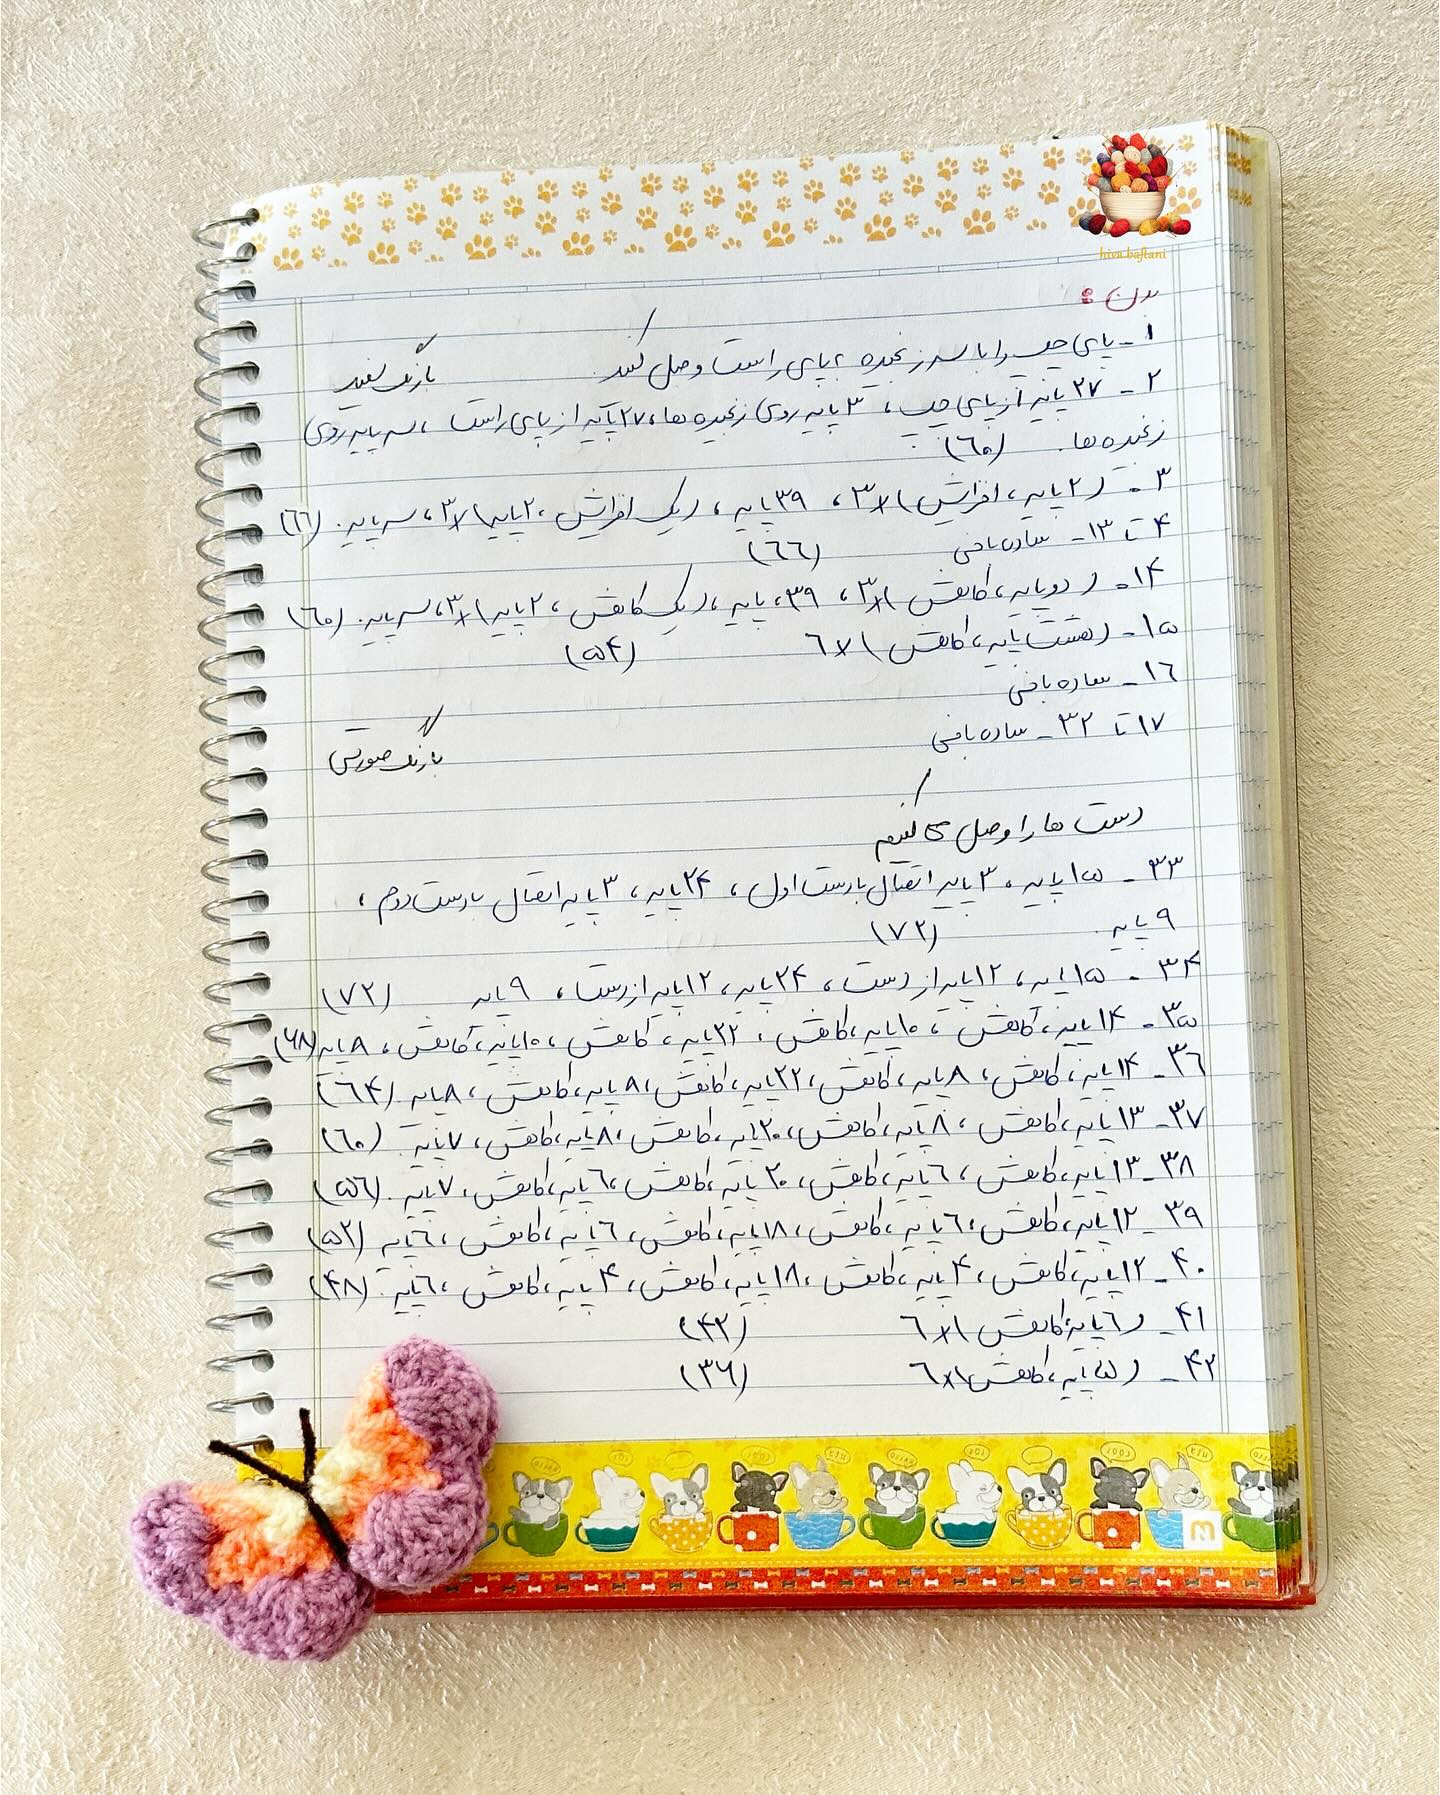 hiva.baftani
بدن :
۱- پای چپ را با سه زنجیره به پای راست وصل کنید.
با رنگ سفید
۲- ۲۷ پایه از پای چپ، ۳ پایه روی زنجیره ها، ۲۷ پایه از پای راست، سه پایه روی
زنجیره ها. (۶۰)
۳- (۲ پایه، افزایش)×۳، ۳۹ پایه، (یک افزایش، ۲ پایه)×۳، سه پایه. (۶۶)
۴ تا ۱۳- ساده بافی (۶۶)
۱۴- (دو پایه، کاهش)×۳، ۳۹ پایه، (یک کاهش، ۲ پایه)×۳، سه پایه. (۶۰)
۱۵- (هشت پایه، کاهش)×۶ (۵۴)
۱۶- ساده بافی
۱۷ تا ۳۲- ساده بافی
با رنگ صورتی
دست ها را وصل می کنیم
۳۳- ۱۵ پایه، ۳ پایه اتصال با دست اول، ۲۴ پایه، ۳ پایه اتصال با دست دوم،
۹ پایه. (۷۲)
۳۴- ۱۵ پایه، ۱۲ پایه از دست، ۲۴ پایه، ۱۲ پایه از دست، ۹ پایه (۷۲)
۳۵- ۱۴ پایه، کاهش، ۱۰ پایه، کاهش، ۲۲ پایه، کاهش، ۱۰ پایه، کاهش، ۸ پایه (۶۸)
۳۶- ۱۴ پایه، کاهش، ۸ پایه، کاهش، ۲۲ پایه، کاهش، ۸ پایه، کاهش، ۸ پایه. (۶۴)
۳۷- ۱۳ پایه، کاهش، ۸ پایه، کاهش، ۲۰ پایه، کاهش، ۸ پایه، کاهش، ۷ پایه. (۶۰)
۳۸- ۱۳ پایه، کاهش، ۶ پایه، کاهش، ۲۰ پایه، کاهش، ۶ پایه، کاهش، ۷ پایه. (۵۶)
۳۹- ۱۲ پایه، کاهش، ۶ پایه، کاهش، ۱۸ پایه، کاهش، ۶ پایه، کاهش، ۶ پایه (۵۲)
۴۰- ۱۲ پایه، کاهش، ۴ پایه، کاهش، ۱۸ پایه، کاهش، ۴ پایه، کاهش، ۶ پایه. (۴۸)
۴۱- (۶ پایه، کاهش)×۶ (۴۲)
۴۲- (۵ پایه، کاهش)×۶ (۳۶)